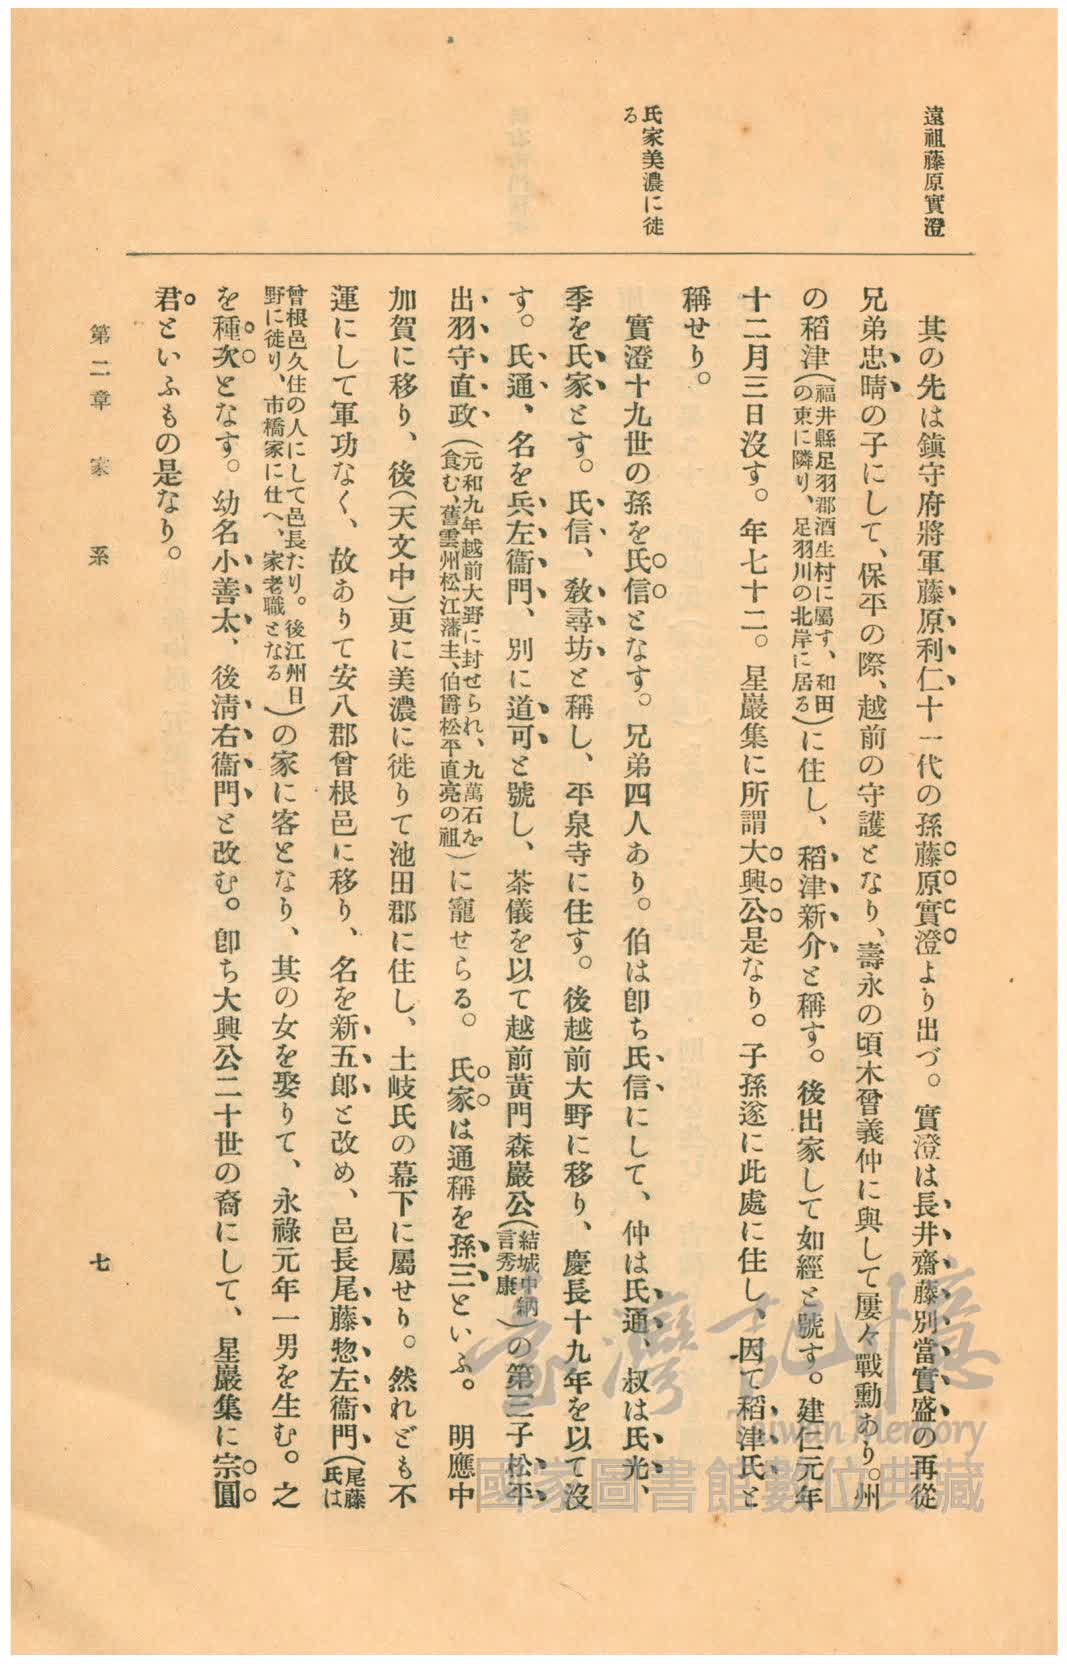 遠祖藤原實澄
氏家美濃に徙
る
其の先は鎭守府將軍藤原利仁十一代の孫藤原實澄より出づ。實澄は長井齋藤別當實盛の再從
兄弟忠晴の子にして、保平の際、越前の守護となり、壽永の頃木曾義仲に與して屢々戰勳あり。州
の稻津(福井縣足羽郡酒生村に屬す、和田
の東に隣り、足羽川の北岸に居る)に住し、稻津新介と稱す。後出家して如經と號す。建仁元年
十二月三日沒す。年七十二。星巖集に所謂大興公是なり。子孫遂に此處に住し、因て稻津氏と
稱せり。
實澄十九世の孫を氏信となす。兄弟四人あり。伯は卽ち氏信にして、仲は氏通、叔は氏光、
季を氏家とす。氏信、敎尋坊と稱し、平泉寺に住す。後越前大野に移り、慶長十九年を以て沒
す。氏通、名を兵左衞門、別に道可と號し、茶儀を以て越前黃門森巖公(結城中納
言秀康)の第三子松平
出羽守直政(元和九年越前大野に封せられ、九萬石を
食む、舊雲州松江藩主、伯爵松平直亮の祖)に寵せらる。氏家は通稱を孫三といふ。明應中
加賀に移り、後(天文中)更に美濃に徙りて池田郡に住し、土岐氏の幕下に屬せり。然れども不
運にして軍功なく、故ありて安八郡曾根邑に移り、名を新五郎と改め、邑長尾藤惣左衞門(尾藤
氏は
曾根邑久住の人にして邑長たり。後江州日
野に徙り、市橋家に仕へ、家老職となる)の家に客となり、其の女を娶りて、永祿元年一男を生む。之
を種次となす。幼名小善太、後淸右衞門と改む。卽ち大興公二十世の裔にして、星巖集に宗圓
君といふもの是なり。
第二章 家系
七
臺灣記憶
Taiwan Memory
國家圖書館數位典藏